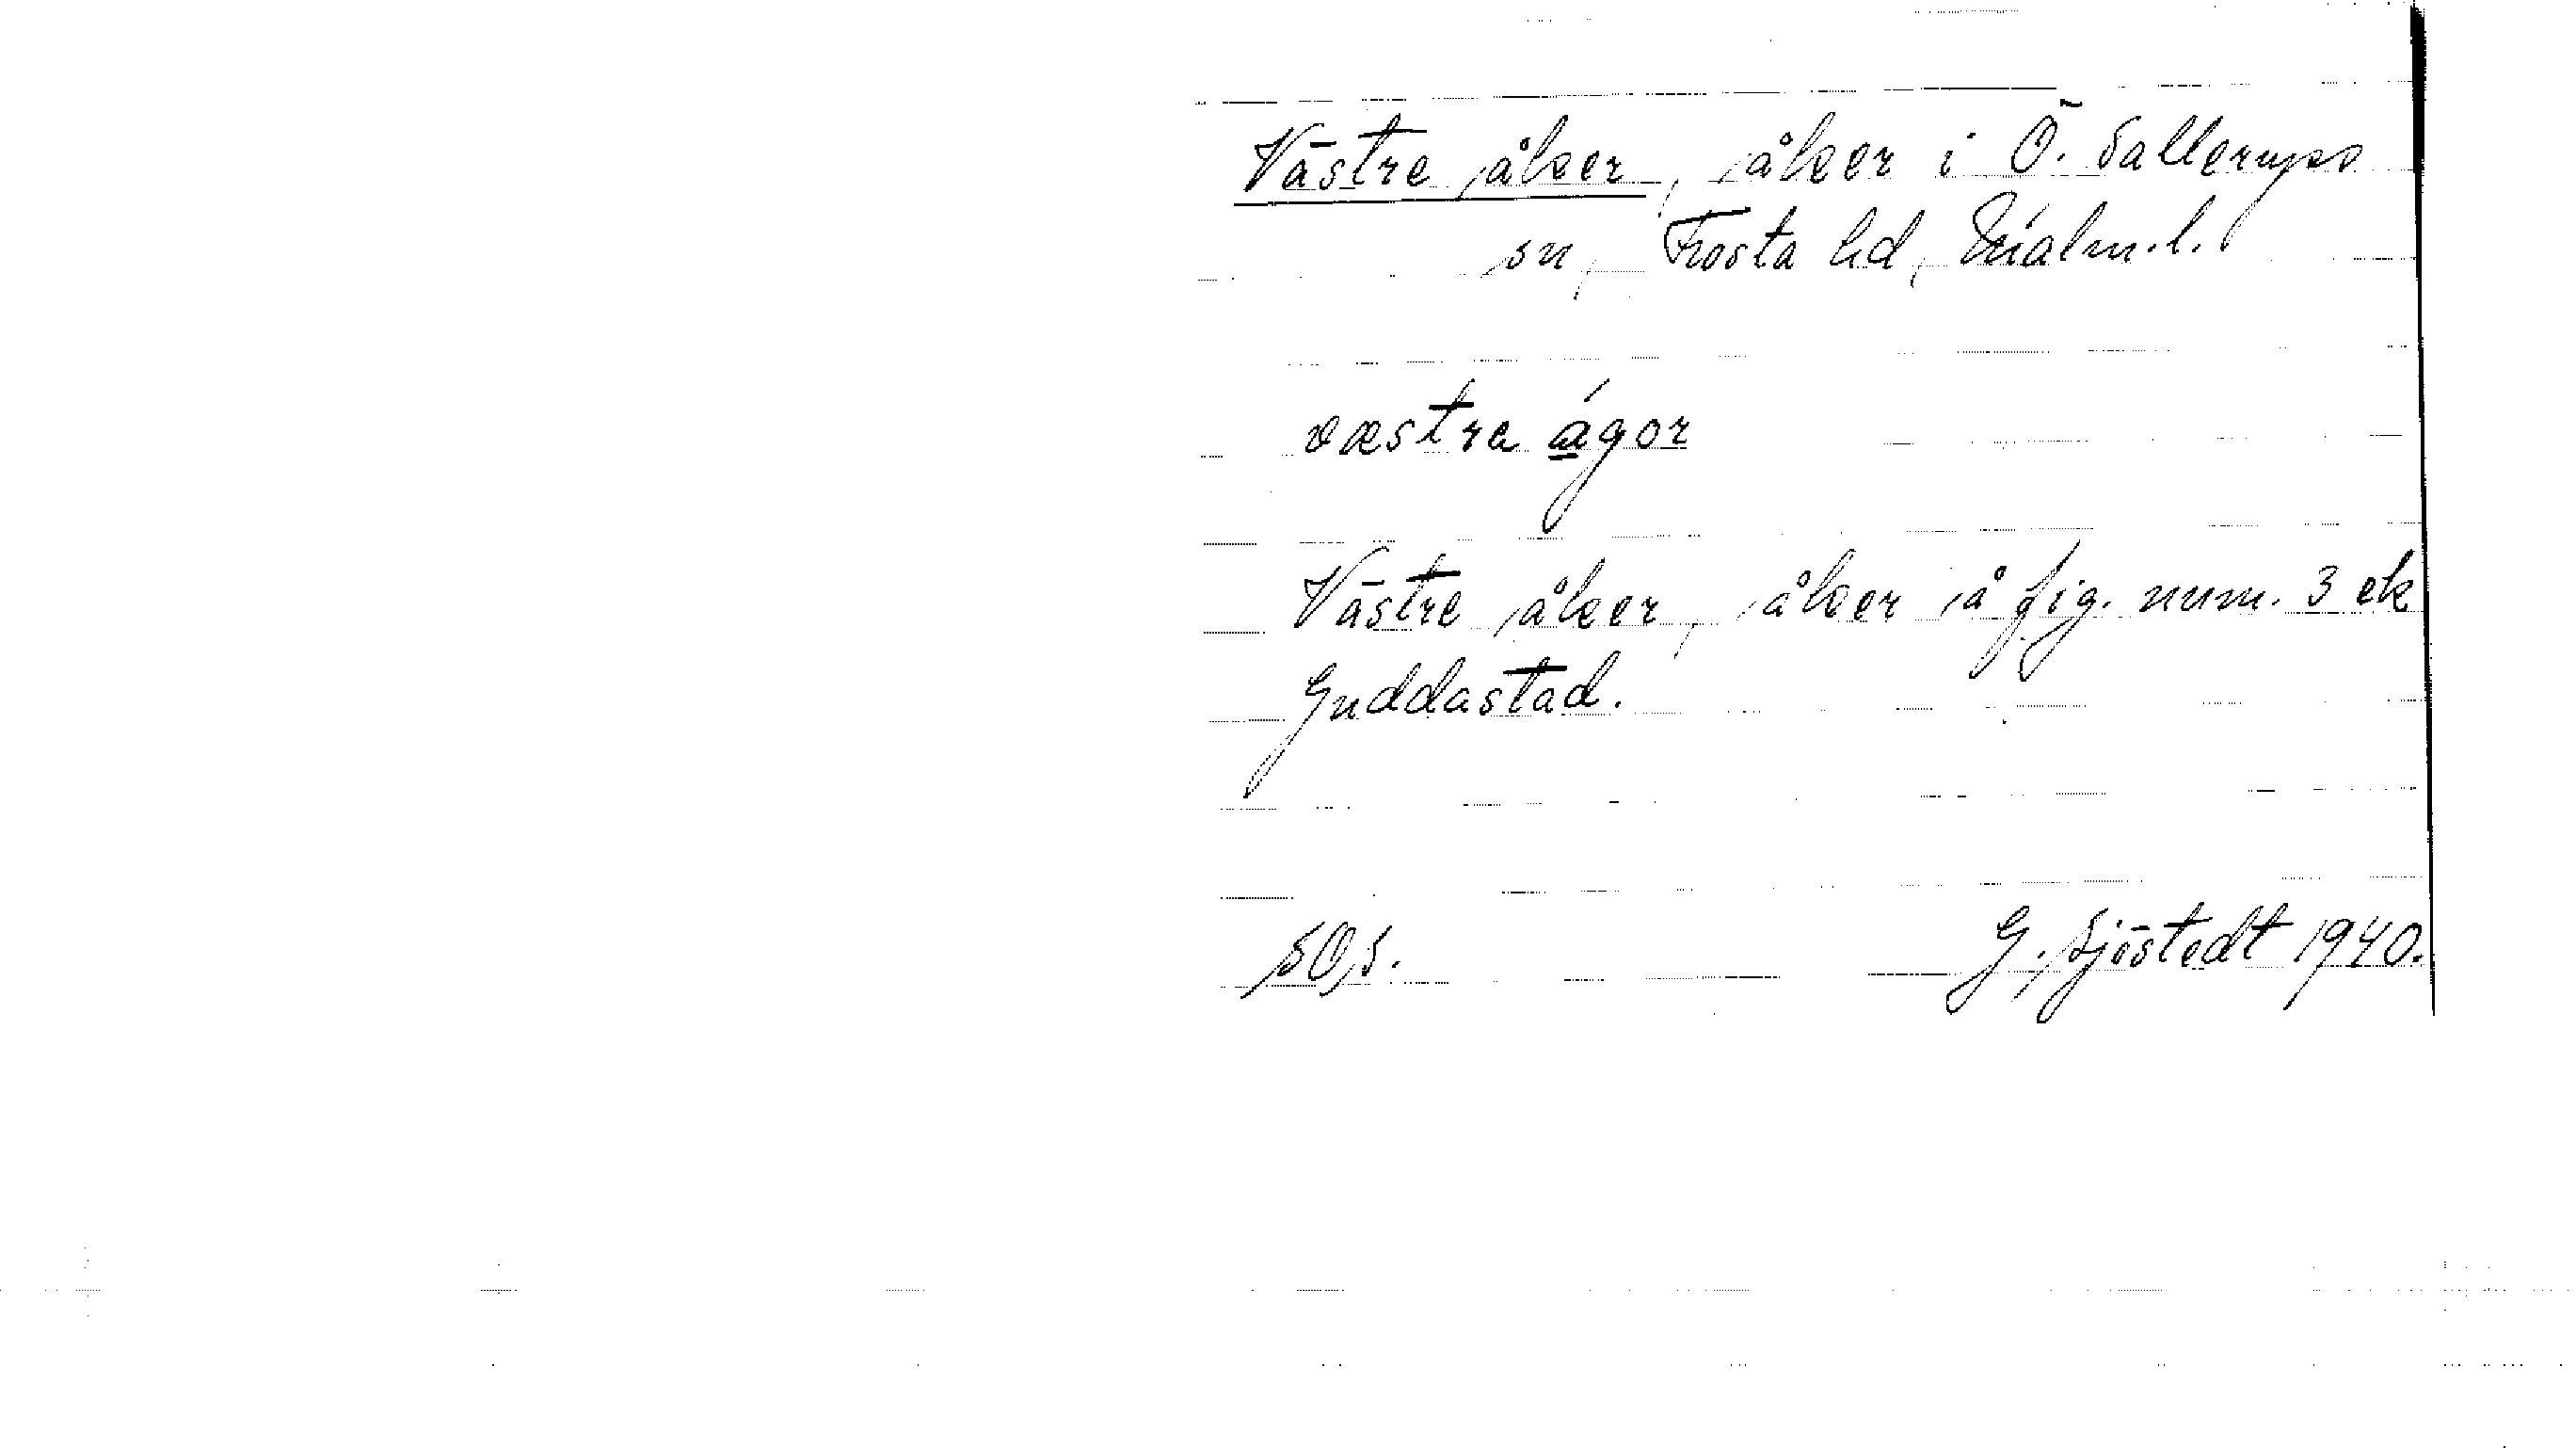 Västre åker, åker i Ö. Sallerups
sn, Frosta hd, Malm. l.
væstre ágor
Västre åker, åker å fig. num. 3 ek
Guddastad.
SOS.
G. Sjöstedt 1940.